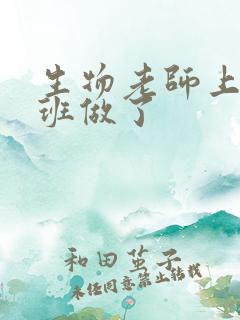 生物老師上
班做了
和田茧子
未经同意禁止转载